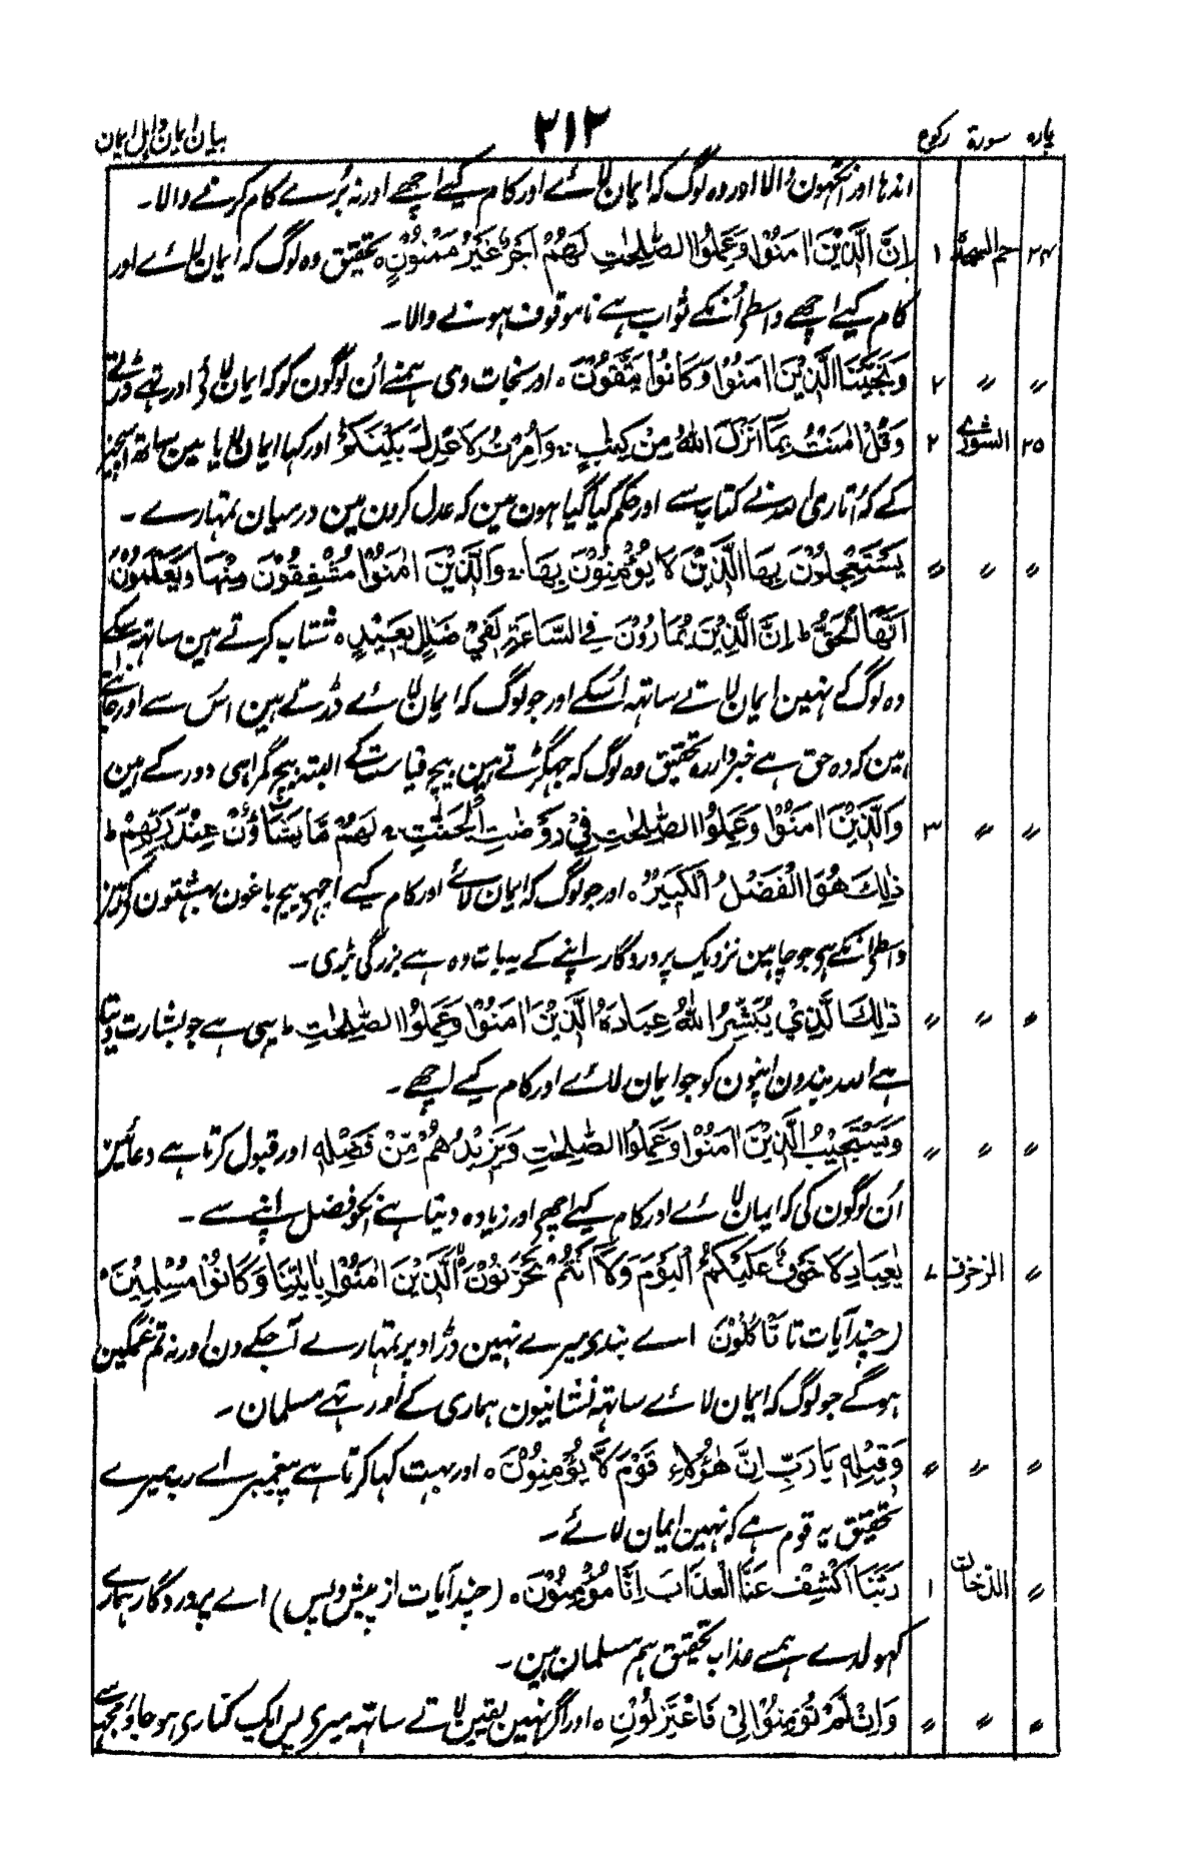 پارہ سورۃ رکوع ۲۱۲ بیان ایمان و اہل ایمان
اندہا اور آنکھون والا اور وہ لوگ کہ ایمان لائے اور کام کیے اچھے اور نہ بُرے کام کرنے والا۔
۲۴ حم السجدۃ ۱ اِنَّ الَّذِیْنَ اٰمَنُوْا وَعَمِلُوا الصّٰلِحٰتِ لَهُمْ اَجْرٌ غَیْرُ مَمْنُوْنٍ ہ تحقیق وہ لوگ کہ ایمان لائے اور
کام کیے اچھے واسطے اُنکے ثواب ہے ناموقوف ہونے والا۔
〃 〃 ۲ وَنَجَّیْنَا الَّذِیْنَ اٰمَنُوْا وَکَانُوْا یَتَّقُوْنَ ہ اور نجات دی ہمنے اُن لوگون کو کہ ایمان لائے اور تھے ڈرتے
۲۵ الشوریٰ ۲ وَقُلْ اٰمَنْتُ بِمَا اَنْزَلَ اللّٰهُ مِنْ کِتٰبٍ ۚ وَاُمِرْتُ لِاَعْدِلَ بَیْنَکُمْ اور کہا ایمان لایا مین ساتھ اسچیز
کے کہ اُتاری اللہ نے کتاب سے اور حکم کیا گیا ہون مین کہ عدل کرون مین درمیان تمہارے ۔
〃 〃 〃 یَسْتَعْجِلُ بِهَا الَّذِیْنَ لَا یُؤْمِنُوْنَ بِهَا ۚ وَالَّذِیْنَ اٰمَنُوْا مُشْفِقُوْنَ مِنْهَا وَیَعْلَمُوْنَ
اَنَّهَا الْحَقُّ ط اِنَّ الَّذِیْنَ یُمَارُوْنَ فِی السَّاعَةِ لَفِیْ ضَلٰلٍ بَعِیْدٍ ہ شتاب کرتے ہین ساتھ اسکے
وہ لوگ کے نہین ایمان لاتے ساتھ اُسکے اور جو لوگ کہ ایمان لائے ڈرتے ہین اُس سے اور جانتے
ہین کہ وہ حق ہے خبردار ہو تحقیق وہ لوگ کہ جھگڑتے ہین بیچ قیامت کے البتہ بیچ گمراہی دور کے ہین
〃 〃 ۳ وَالَّذِیْنَ اٰمَنُوْا وَعَمِلُوا الصّٰلِحٰتِ فِیْ رَوْضٰتِ الْجَنّٰتِ ۚ لَهُمْ مَّا یَشَآؤُنَ عِنْدَ رَبِّهِمْ ط
ذٰلِكَ هُوَ الْفَضْلُ الْکَبِیْرُ ہ اور جو لوگ کہ ایمان لائے اور کام کیے اچھے بیچ باغون بہشتون کے ہین
واسطے انکے ہے جو چاہین نزدیک پروردگار اپنے کے یہ بات وہ ہے بزرگی بڑی ۔
〃 〃 〃 ذٰلِكَ الَّذِیْ یُبَشِّرُ اللّٰهُ عِبَادَهُ الَّذِیْنَ اٰمَنُوْا وَعَمِلُوا الصّٰلِحٰتِ ط یہی ہے جو بشارت دیتا
ہے اللہ بندون اپنون کو جو ایمان لائے اور کام کیے اچھے ۔
〃 〃 〃 وَیَسْتَجِیْبُ الَّذِیْنَ اٰمَنُوْا وَعَمِلُوا الصّٰلِحٰتِ وَیَزِیْدُهُمْ مِّنْ فَضْلِهٖ اور قبول کرتا ہے دعائین
اُن لوگون کی کہ ایمان لائے اور کام کیے اچھے اور زیادہ دیتا ہے انکو فضل اپنے سے ۔
〃 الزخرف ۷ یٰعِبَادِ لَا خَوْفٌ عَلَیْکُمُ الْیَوْمَ وَلَا اَنْتُمْ تَحْزَنُوْنَ ۚ اَلَّذِیْنَ اٰمَنُوْا بِاٰیٰتِنَا وَکَانُوْا مُسْلِمِیْنَ ہ
(چند آیات تا تَاْکُلُوْنَ اے بندے میرے نہین ڈر اوپر تمہارے آجکے دن اور نہ تم غمگین
ہوگے جو لوگ کہ ایمان لائے ساتھ نشانیون ہماری کے اور تھے مسلمان ۔
〃 〃 〃 وَقِیْلِهٖ یَا رَبِّ اِنَّ هٰؤُلَاءِ قَوْمٌ لَّا یُؤْمِنُوْنَ ہ اور بہت کہا کرتا ہے پیغمبر اے رب میرے
تحقیق یہ قوم ہے کہ نہین ایمان لائے ۔
〃 الدخان ۱ رَبَّنَا اکْشِفْ عَنَّا الْعَذَابَ اِنَّا مُؤْمِنُوْنَ ہ (چند آیات از پیش و پس) اے پروردگار ہمارے
کھولدے ہمسے عذاب تحقیق ہم مسلمان ہین ۔
〃 〃 〃 وَاِنْ لَّمْ تُؤْمِنُوْا لِیْ فَاعْتَزِلُوْنِ ہ اور اگر نہین یقین لاتے ساتھ میرے پس ایک کناری ہوجاؤ مجھ سے